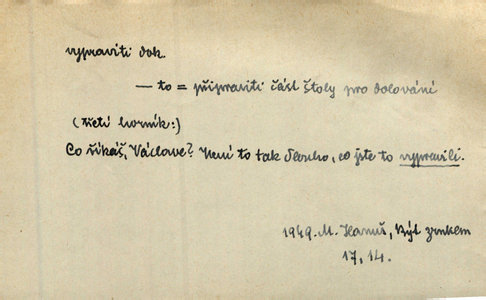 vypraviti dok.
— to = připraviti část štoly pro dolování
(třetí horník:)
Co říkáš, Václave? Není to tak dlouho, co jste to vypravili.
1949. M. Hanuš, Být zrnkem
17, 14.